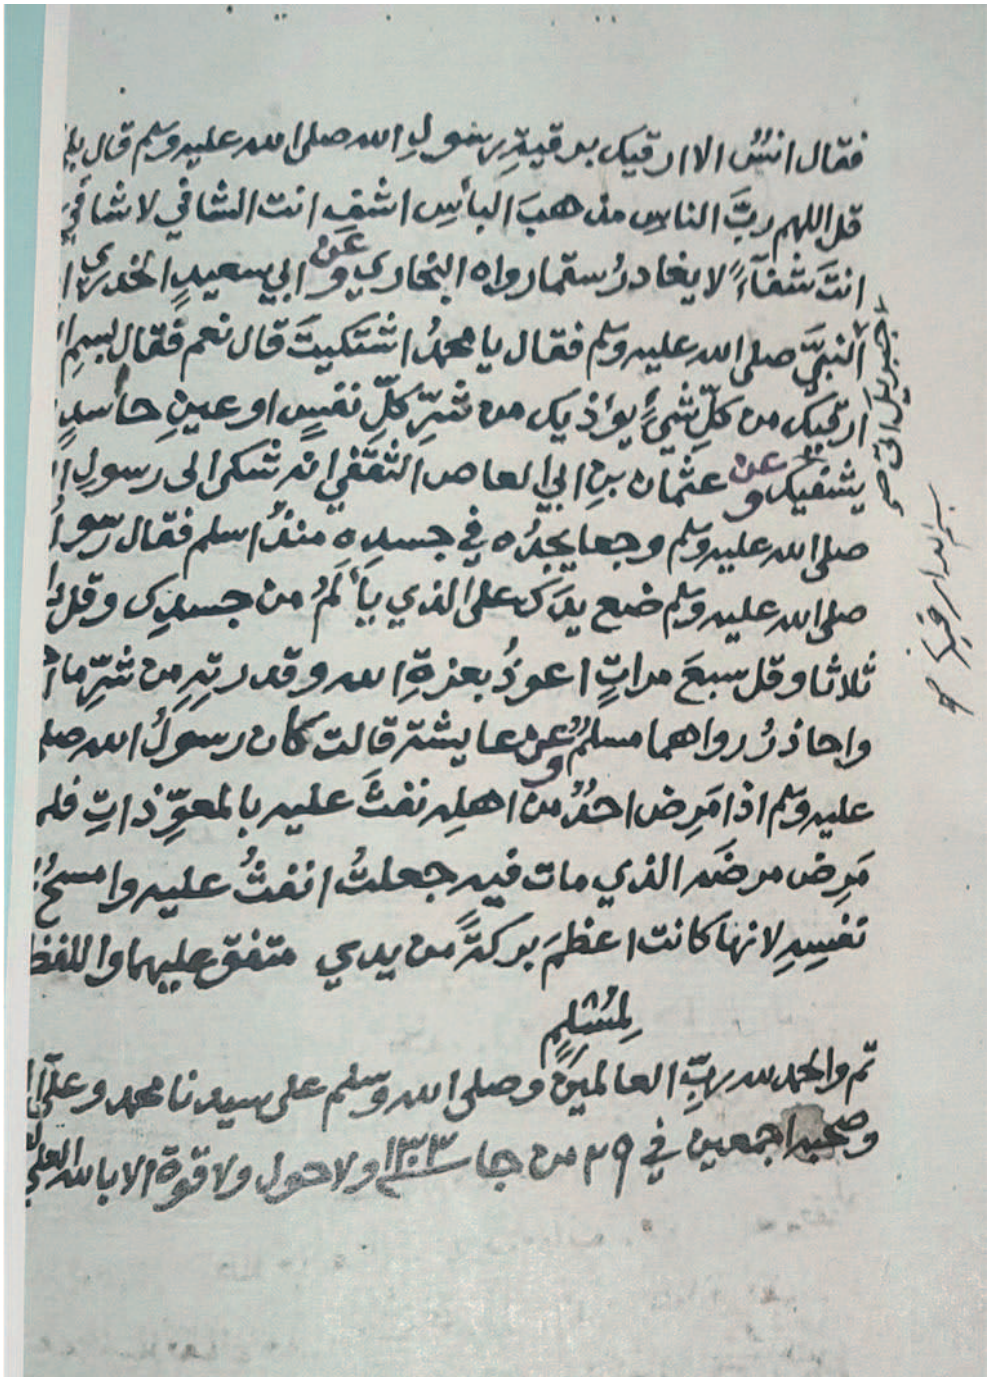 فقال انسٌ الا ارقيك برقيةِ رسولِ الله صلى الله عليه وسلم قال بلى
قل اللهم ربَّ الناسِ مذهبَ البأسِ اشفِ انت الشافي لا شافيَ
انتَ شفآءً لا يغادرُ سقما رواه البخاري وعَن ابي سعيدٍ الخدري
النبيَّ صلى الله عليه وسلم فقال يا محمدُ اشتكيتَ قال نعم فقال بسمِ
ارقيك من كلِّ شيءٍ يؤذيك من شرِّ كلِّ نفسٍ او عينِ حاسدٍ
يشفيك وعن عثمان بنِ ابي العاص الثقفي انه شكى الى رسولِ
صلى الله عليه وسلم وجعا يجدُه في جسدِه منذُ اسلم فقال رسو
صلى الله عليه وسلم ضع يدَك على الذي يَأْلَمُ من جسدِك وقل
ثلاثا وقل سبعَ مراتٍ اعوذُ بعزةِ الله وقدرتِهِ من شرِّ ما
واحاذرُ رواهما مسلمٌ وعن عايشة قالت كان رسولُ الله صلى
عليه وسلم اذا مَرِض احدٌ من اهلِه نفثَ عليه بالمعوِّذاتِ فلم
مَرِض مرضَه الذي مات فيه جعلتُ انفثُ عليه وامسحُ
نفسِهِ لانها كانت اعظمَ بركةً من يدي متفق عليهما واللفظ
لِمُسْلِمٍ
تم والحمد لله ربِّ العالمين وصلى الله وسلم على سيدنا محمد وعلى
وصحبه اجمعين في ٢٩ من جا ١٣٠٣ ولا حول ولا قوة الا بالله العلي
جبريل اتى صح
بسم الله ارقيك